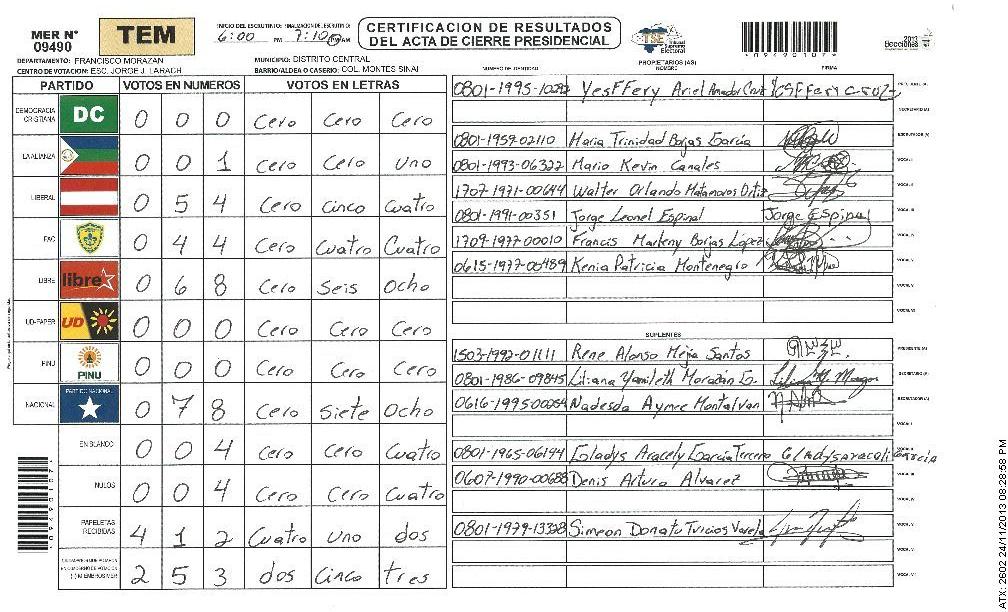 MER N° 09490
TEM
INICIO DEL ESCRUTINIO: 6:00 PM
FINALIZACION DEL ESCRUTINIO: 7:10 PM AM
CERTIFICACION DE RESULTADOS
DEL ACTA DE CIERRE PRESIDENCIAL
TSE
Tribunal Supremo Electoral
09490107
2013
Elecciones
DEPARTAMENTO: FRANCISCO MORAZAN
MUNICIPIO: DISTRITO CENTRAL
CENTRO DE VOTACION: ESC. JORGE J. LARACH
BARRIO/ALDEA O CASERIO: COL. MONTES SINAI
PARTIDO VOTOS EN NUMEROS VOTOS EN LETRAS
DEMOCRACIA CRISTIANA DC 0 0 0 Cero Cero Cero
LA ALIANZA 0 0 1 Cero Cero Uno
LIBERAL 0 5 4 Cero Cinco Cuatro
PAC 0 4 4 Cero Cuatro Cuatro
LIBRE libre 0 6 8 Cero Seis Ocho
UD-FAPER UD 0 0 0 Cero Cero Cero
PINU PINU 0 0 0 Cero Cero Cero
NACIONAL PARTIDO NACIONAL 0 7 8 Cero Siete Ocho
EN BLANCO 0 0 4 Cero Cero Cuatro
NULOS 0 0 4 Cero Cero Cuatro
PAPELETAS RECIBIDAS 4 1 2 Cuatro uno dos
2 5 3 dos Cinco tres
NUMERO DE IDENTIDAD
PROPIETARIOS (AS)
NOMBRE
FIRMA
Yesffery Ariel Amador Cruz Yesffery Cruz PRESIDENTE (A)
SECRETARIO (A)
0801-1959-02110 Maria Trinidad Borjas Garcia ESCRUTADOR (A)
0801-1993-06322 Mario Kevin Canales VOCAL I
1707-1971-00644 Walter Orlando Matamoros Ortiz VOCAL II
0801-1991-00351 Jorge Leonel Espinal Jorge Espinal VOCAL III
1709-1977-00010 Francis Marleny Borjas López VOCAL IV
0615-1977-00489 Kenia Patricia Montenegro
VOCAL V
VOCAL VI
SUPLENTES
1503-1992-01111 Rene Alonso Mejia Santos PRESIDENTE (A)
0801-1986-09845 Liliana Yamileth Morazán G. SECRETARIO (A)
Nadesda Aymee Montalvan ESCRUTADOR (A)
VOCAL I
0801-1965-06194 Gladys Aracely Garcia Tercero Gladys araceli Garcia
0607-1990-00688 Denis Arturo Alvarez VOCAL III
VOCAL IV
0801-1979-13328 Simeon Donato Turcios Varela VOCAL V
VOCAL V
VOCAL VI
09490107
ATX: 2602 24/11/2013 08:28:58 PM